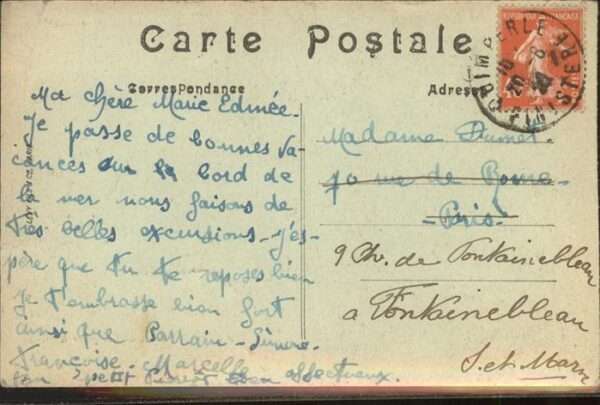 Carte Postale
Correspondance
Adresse
Ma chère Marie Edmée.
Je passe de bonnes va-
cances sur le bord de
la mer nous faisons de
très belles excursions - j'es-
père que tu te reposes bien
Je t'embrasse bien fort
ainsi que Parrain -
Françoise - Marcelle
ton petit affectueux.
Madame
70 rue de Rome -
- Paris -
9 Ch. de Fontainebleau
à Fontainebleau
S. et Marne
QUIMPERLE
FINISTERE